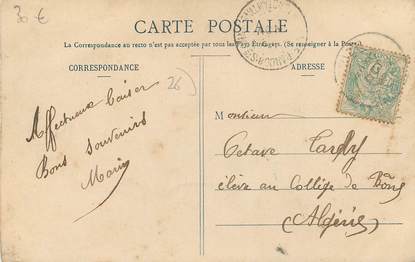 30 €
CARTE POSTALE
La Correspondance au recto n'est pas acceptée par tous les Pays Étrangers. (Se renseigner à la Poste).
CORRESPONDANCE
26)
Affectueux baiser
Bons souvenirs
Marie
Monsieur
Octave Tardy
élève au Collège de Bône
(Algérie)